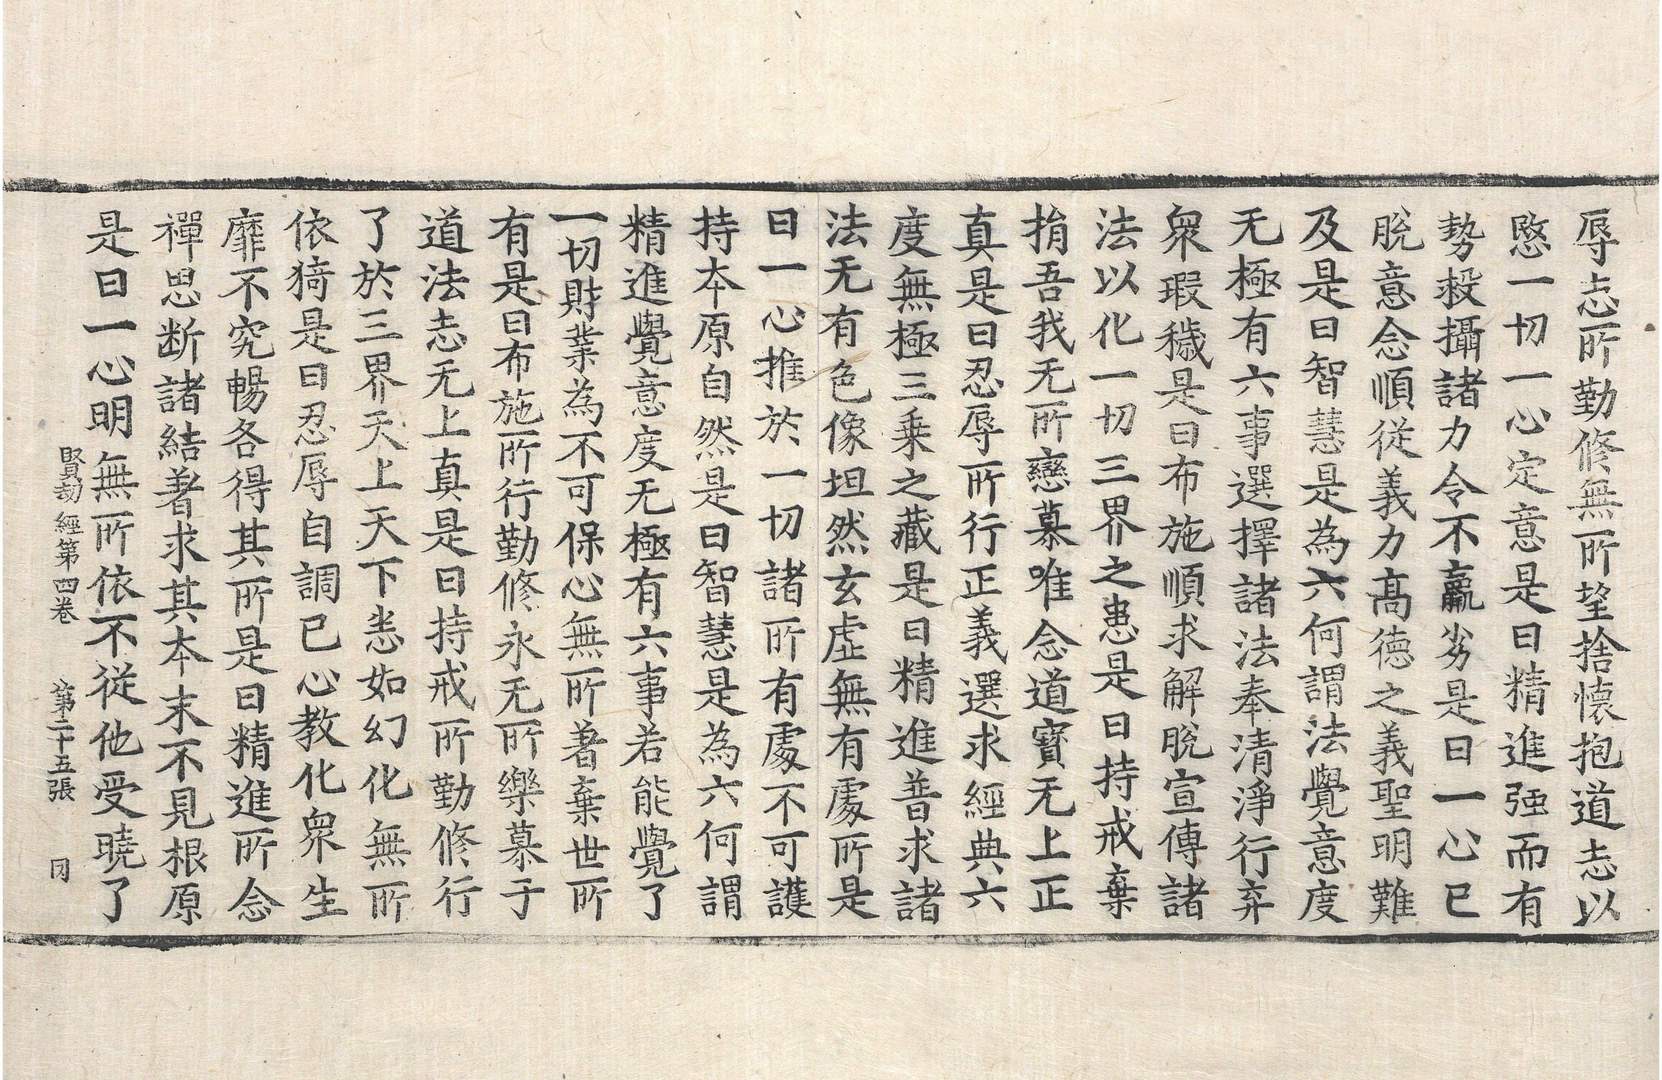 辱志所勤修無所望捨懷抱道志以
愍一切一心定意是曰精進强而有
勢殺攝諸力令不羸劣是曰一心已
脫意念順從義力髙德之義聖明難
及是曰智慧是為六何謂法覺意度
无極有六事選擇諸法奉清淨行弃
衆瑕穢是曰布施順求解脫宣傳諸
法以化一切三界之患是曰持戒棄
捐吾我无所戀慕唯念道寶无上正
真是曰忍辱所行正義選求經典六
度無極三乗之藏是曰精進普求諸
法无有色像坦然玄虛無有處所是
曰一心推於一切諸所有處不可護
持本原自然是曰智慧是為六何謂
精進覺意度无極有六事若能覺了
一切財業為不可保心無所著棄世所
有是曰布施所行勤修永无所樂慕于
道法志无上真是曰持戒所勤修行
了於三界天上天下悉如幻化無所
依猗是曰忍辱自調已心教化衆生
靡不究暢各得其所是曰精進所念
禪思断諸結著求其本末不見根原
是曰一心明無所依不從他受曉了
賢劫經第四卷 第二十五張 冈